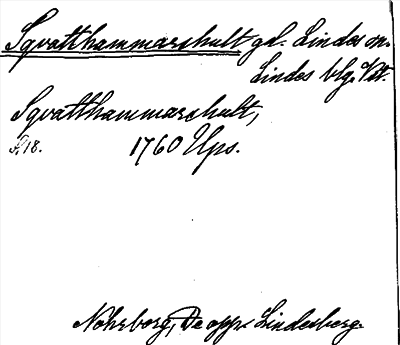 Sqvatthammarshult gd. Lindes sn.
Lindes blg. Vstm.
Sqvatthammarshult,
S. 18. 1760 Ups.
Nohrborg, De opp. Lindesberg.